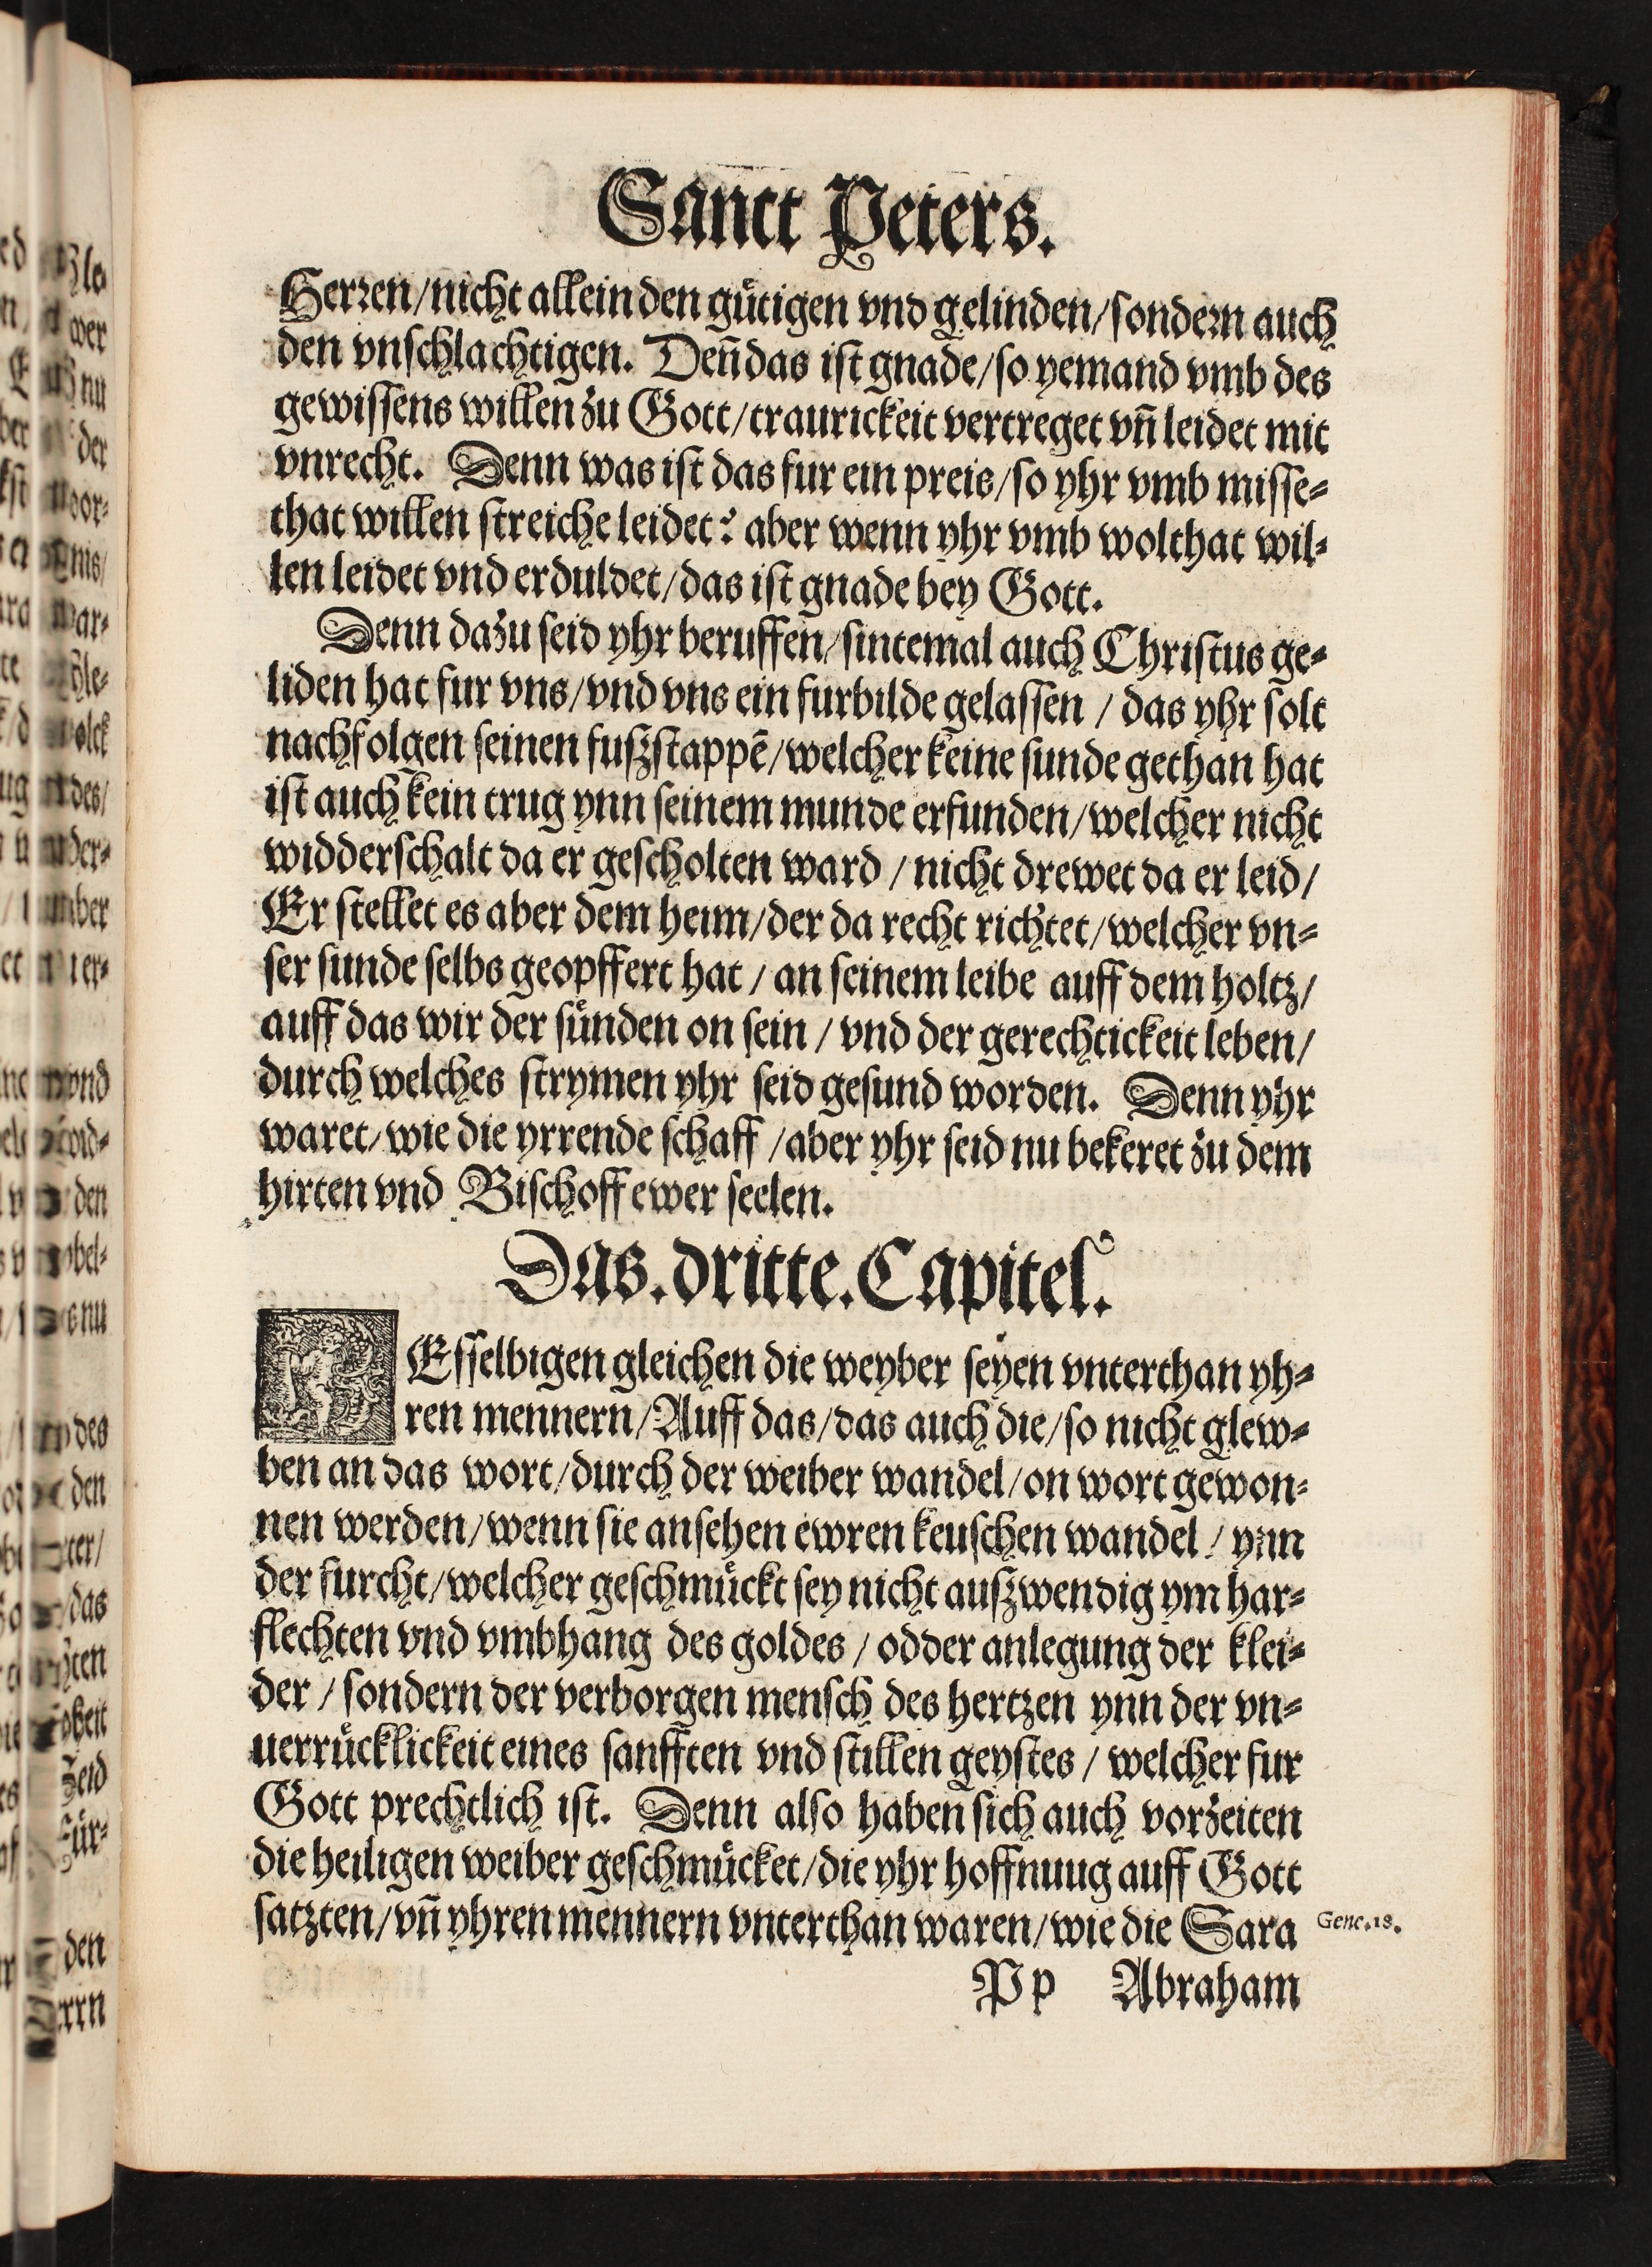 Sanct Peters.
Herren/nicht allein den gütigen vnd gelinden/sondern auch
den vnschlachtigen. Deñ das ist gnade/so yemand vmb des
gewissens willen zu Gott/traurickeit vertreget vñ leidet mit
vnrecht. Denn was ist das fur ein preis/so yhr vmb misse⸗
that willen streiche leidet? aber wenn yhr vmb wolthat wil⸗
len leidet vnd erduldet/das ist gnade bey Gott.
Denn dazu seid yhr beruffen/sintemal auch Christus ge⸗
liden hat fur vns/vnd vns ein furbilde gelassen / das yhr solt
nachfolgen seinen fußstappē/welcher keine sunde gethan hat
ist auch kein trug ynn seinem munde erfunden/welcher nicht
widderschalt da er gescholten ward / nicht drewet da er leid/
Er stellet es aber dem heim/der da recht richtet/welcher vn⸗
ser sunde selbs geopffert hat / an seinem leibe auff dem holtz/
auff das wir der sünden on sein / vnd der gerechtickeit leben/
durch welches strymen yhr seid gesund worden. Denn yhr
waret/wie die yrrende schaff /aber yhr seid nu bekeret zu dem
hirten vnd Bischoff ewer seelen.
Das.dritte.Capitel.
DEsselbigen gleichen die weyber seyen vnterthan yh⸗
ren mennern/Auff das/das auch die/so nicht glew⸗
ben an das wort/durch der weiber wandel/on wort gewon⸗
nen werden/wenn sie ansehen ewren keuschen wandel / ynn
der furcht/welcher geschmückt sey nicht außwendig ym har⸗
flechten vnd vmbhang des goldes / odder anlegung der klei⸗
der / sondern der verborgen mensch des hertzen ynn der vn⸗
uerrücklickeit eines sanfften vnd stillen geystes / welcher fur
Gott prechtlich ist. Denn also haben sich auch vorzeiten
die heiligen weiber geschmücket/die yhr hoffnuug auff Gott
satzten/vñ yhren mennern vnterthan waren/wie die Sara
Gene.18.
Pp Abraham